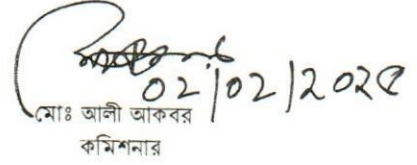 ০২/০২/২০২৫
মোঃ আলী আকবর
কমিশনার